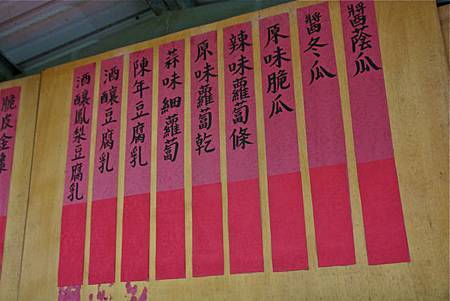 醬蔭瓜
醬冬瓜
原味脆瓜
辣味蘿蔔條
原味蘿蔔乾
蒜味細蘿蔔
陳年豆腐乳
酒釀豆腐乳
酒釀鳳梨豆腐乳
脆皮金